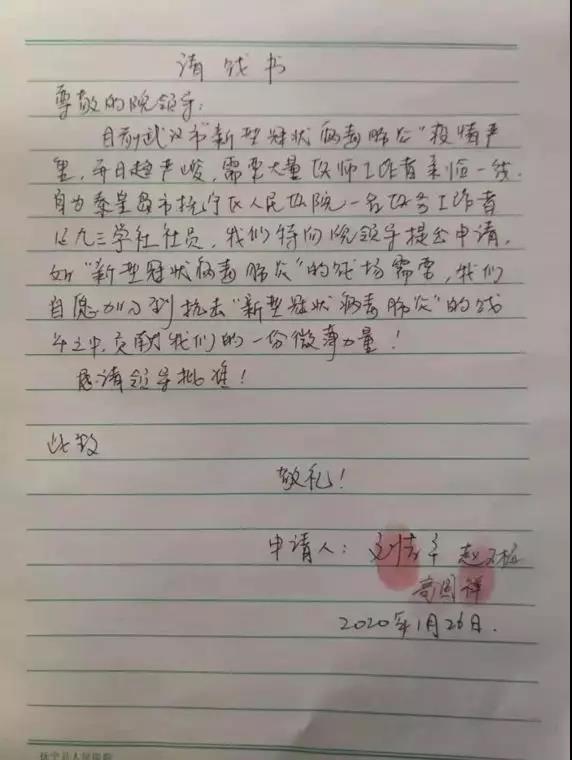 请战书
尊敬的院领导：
目前武汉市“新型冠状病毒肺炎”疫情严
重，每日趋严峻，需要大量医师工作者亲临一线.
身为秦皇岛市抚宁区人民医院一名医务工作者
及九三学社社员，我们特向院领导提出申请，
如“新型冠状病毒肺炎”的战场需要，我们
自愿加入到抗击“新型冠状病毒肺炎”的战
斗之中，贡献我们的一份微薄力量！
恳请领导批准！
此致
敬礼！
申请人：
高国祥
2020年1月26日.